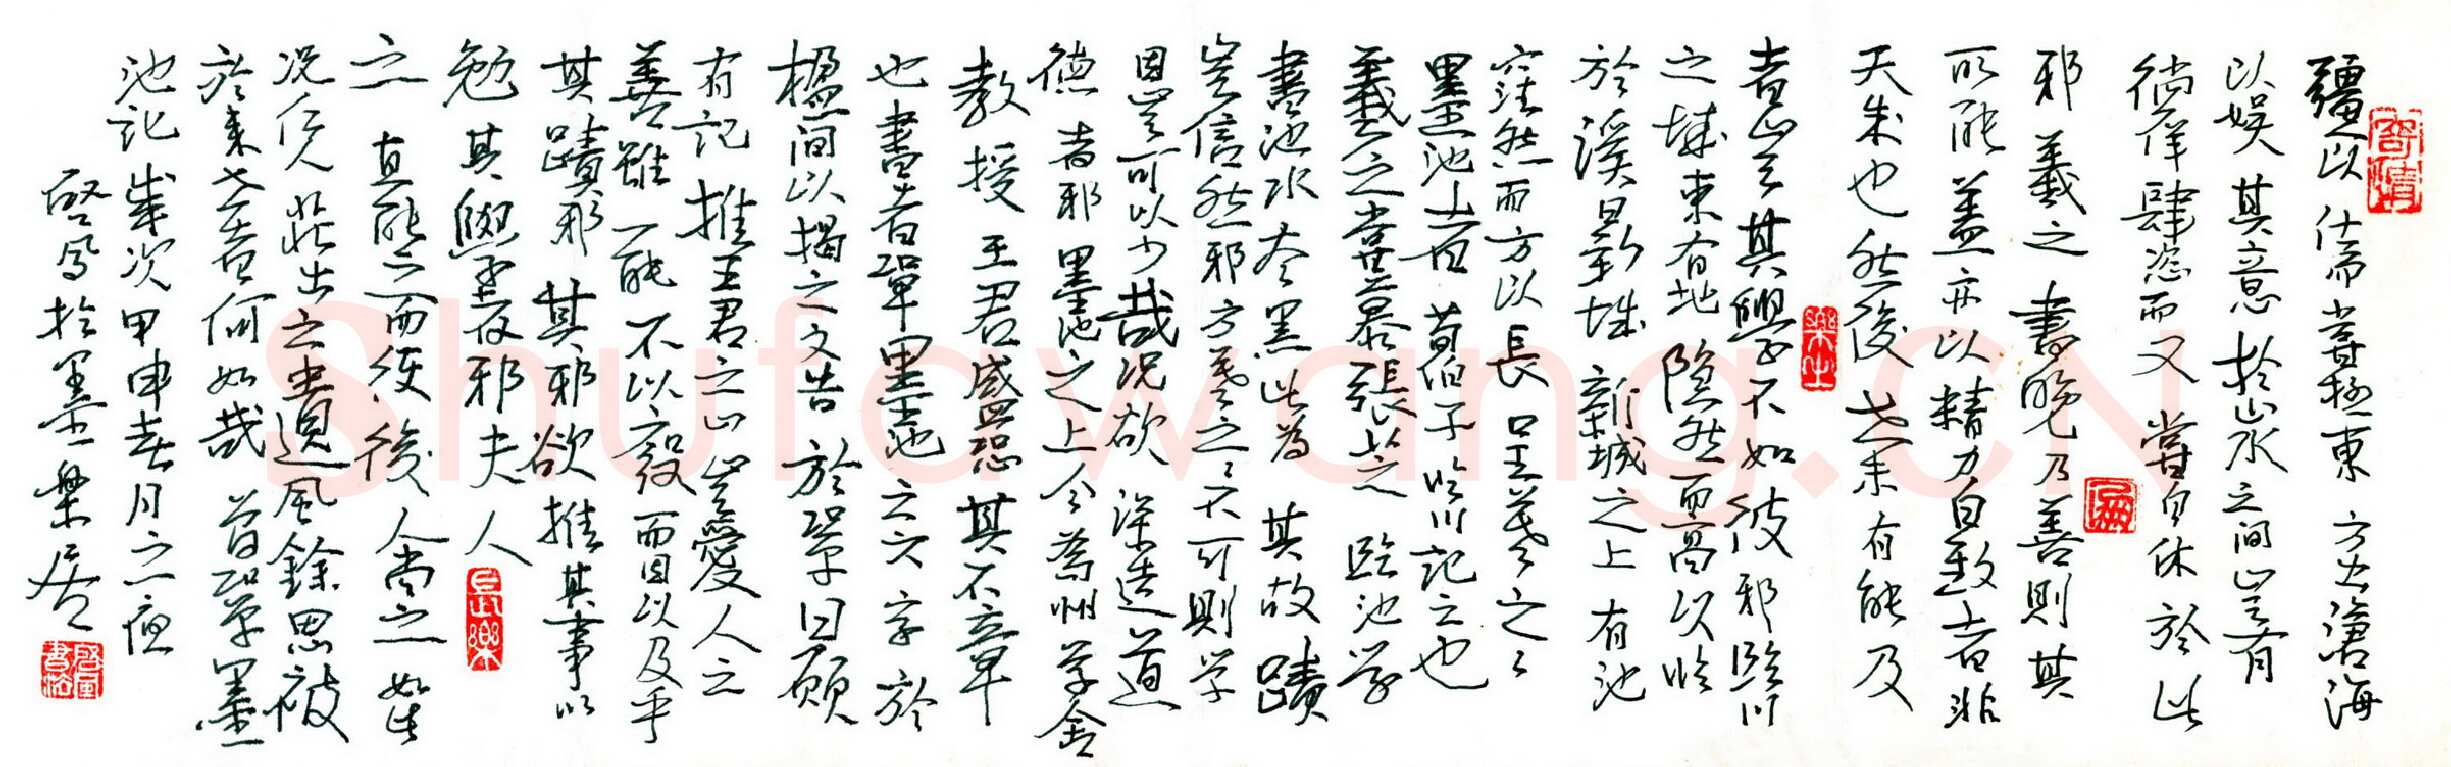 疆以仕而嘗極東方出滄海
以娛其意於山水之間豈有
徜徉肆恣而又嘗自休於此
邪羲之書晚乃善則其
所能蓋亦以精力自致者非
天成也然後世未有能及
者豈其學不如彼邪臨川
之城東有地隱然而高以臨
於溪曰新城新城之上有池
窪然而方以長曰王羲之之
墨池者荀伯子臨川記云也
羲之嘗慕張芝臨池學
書池水盡黑此為其故蹟
豈信然邪方羲之之不可則學
固豈可以少哉況欲深造道
德者邪墨池之上今為州學舍
教授王君盛恐其不章
也書軍墨池之六字於
楹間以揭之又告於鞏曰願
有記推王君之心豈愛人之
善雖一能不以廢而因以及乎
其蹟邪其邪欲推其事以
勉其學者邪夫人
之能而使後人尚之如此
況仁人莊士之遺風餘思被
於來世者何如哉 曾鞏墨
池記歲次甲申春月之夜
於墨樂居
寄情
長樂
Shufawang.CN